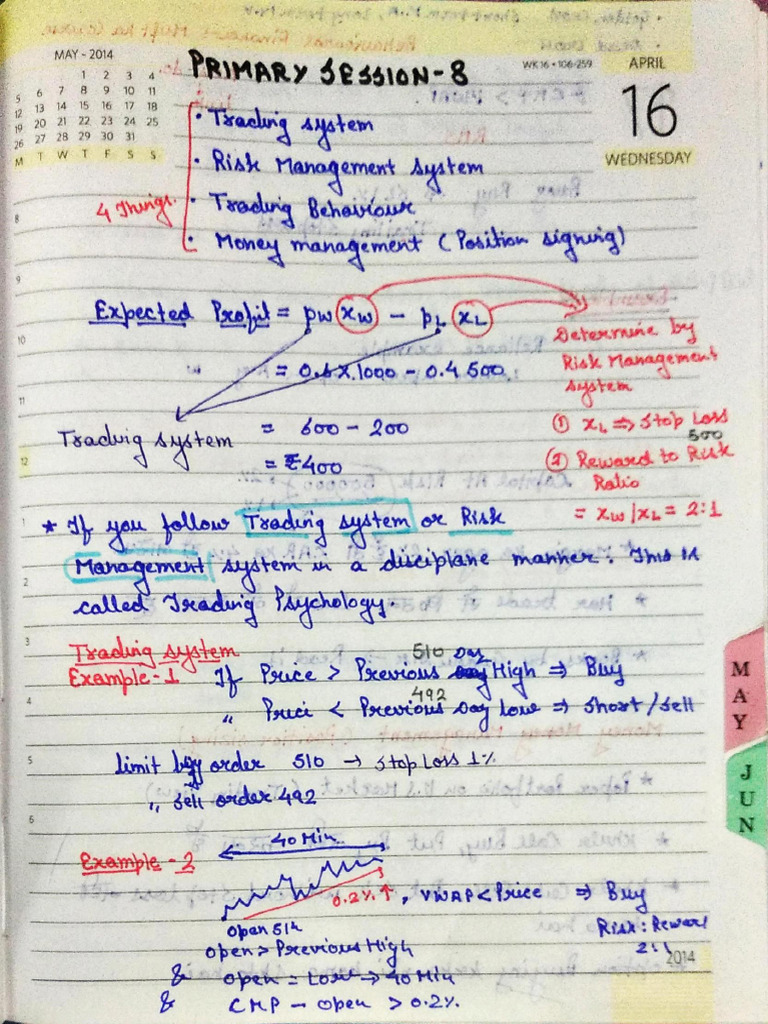 MAY - 2014
1 2 3 4
5 6 7 8 9 10 11
12 13 14 15 16 17 18
19 20 21 22 23 24 25
26 27 28 29 30 31
M T W T F S S
PRIMARY SESSION-8
WK 16 • 106-259
APRIL
16
WEDNESDAY
4 Things.
• Trading system
• Risk Management system
• Trading Behaviour
• Money management (Position signing)
8
9
10
11
12
1
2
3
4
5
6
Expected Profit = pw xw - pL xL
Determine by
Risk Management
system
" = 0.6 X 1000 - 0.4 500
Trading system = 600 - 200
= ₹400
① xL ⇒ Stop Loss
500
② Reward to Risk
Ratio
= xw/xL = 2:1
* If you follow Trading system or Risk
Management system in a disciplane manner. This is
called Trading Psychology.
Trading system
Example-1 If Price > Previous Day High ⇒ Buy
510
" Price < Previous Day Low ⇒ Short/Sell
492
limit buy order 510 → Stop Loss 1%
" sell order 492
MAY
JUN
Example - 2
40 Min.
0.2% ↑, VWAP < Price ⇒ Buy
open 514
Risk : Reward
2:1
open > Previous High
& open = Low → 40 Min
& CMP - open > 0.2%
2014